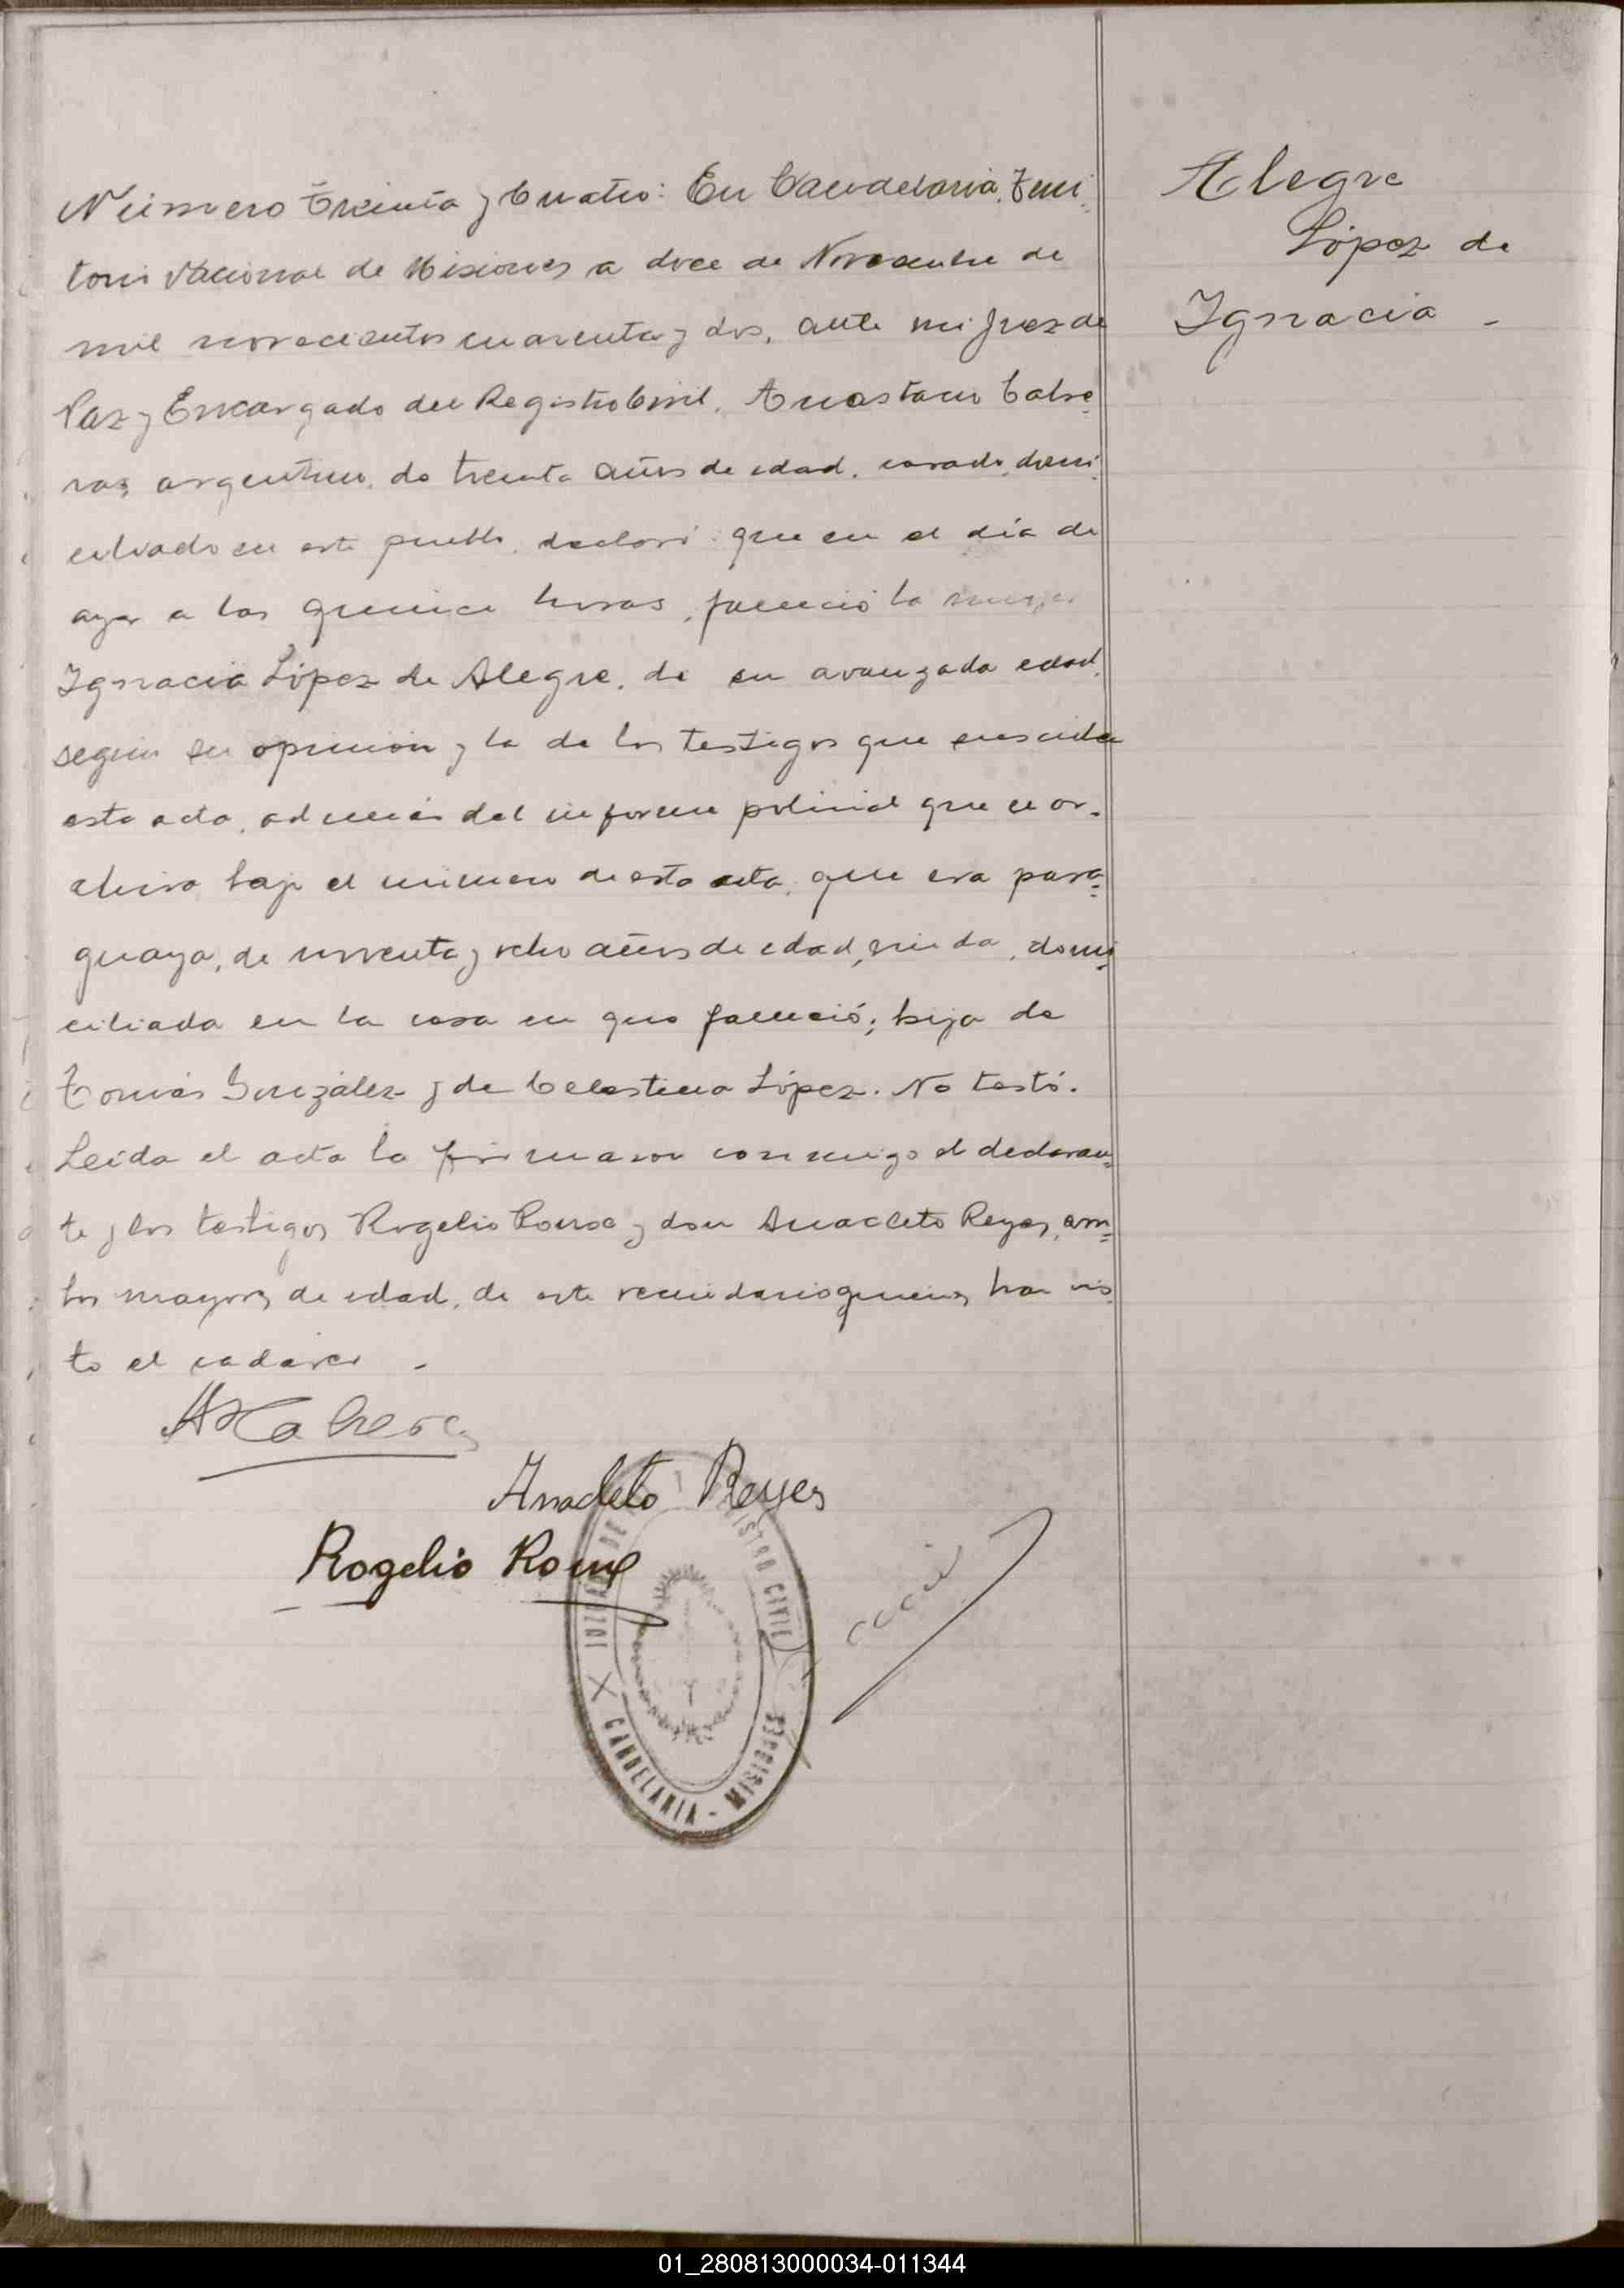 Número Treinta y Cuatro: En Candelaria, Terri-
torio Nacional de Misiones a doce de Noviembre de
mil novecientos cuarenta y dos, ante mi Juez de
Paz y Encargado del Registro Civil, Anastacio Cabre-
ra, argentino, de treinta años de edad, casado, domi-
ciliado en este pueblo, declaró: que en el día de
ayer a las quince horas, falleció la mujer
Ignacia López de Alegre, de su avanzada edad,
según su opinión y la de los testigos que suscriben
esta acta, además del informe policial que se ar-
chiva bajo el número de esta acta, que era para-
guaya, de noventa y ocho años de edad, viuda, domi-
ciliada en la casa en que falleció; hija de
Tomás González y de Celestina López. No testó.
Leída el acta la firmaron conmigo el declaran-
te y los testigos Rogelio y don Anacleto Reyes, am-
bos mayores de edad, de este vecindario quienes han vis-
to el cadáver -
ACabrera
Anacleto Reyes
Rogelio
JUZGADO DE PAZ Y REGISTRO CIVIL
CANDELARIA - MISIONES
Alegre
López de
Ignacia -
01_280813000034-011344